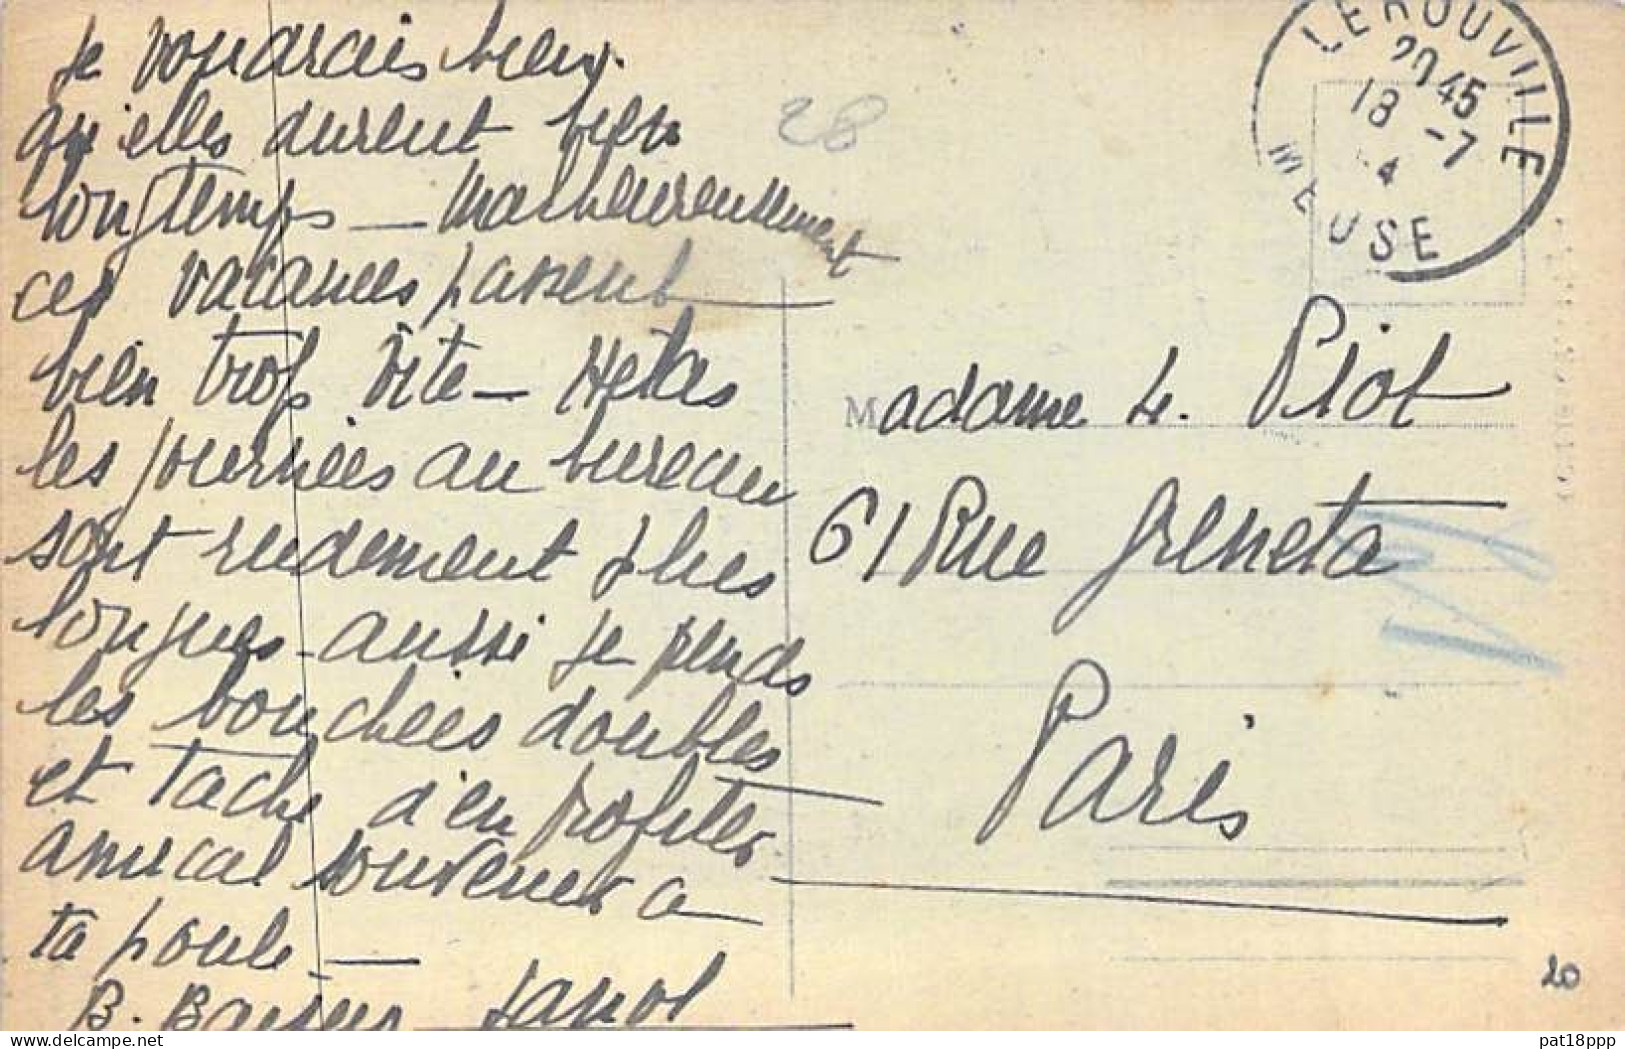 je voudrais bien
qu'elles durent bien
longtemps — malheureusement
ces vacances passent
bien trop vite — Helas
les journées au bureau
sont rudement plus
longues - aussi je prends
les bouchées doubles
et tache d'en profiter
amical souvenir a
ta poule —
B. Baisers
28
LEROUVILLE
20 45
18 -7
4
MEUSE
Madame L. Piot
61 Rue Greneta
Paris
20
pat18ppp